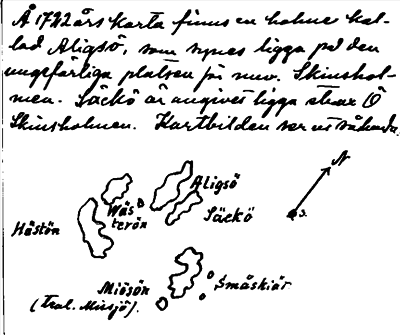 Å 1722 års karta finns en holme kal-
lad Aligsö, som synes ligga på den
ungefärliga platsen för nuv. Skinshol-
men. Säckö är angivet ligga strax Ö
Skinsholmen. Kartbilden ser ut sålunda:
N
Aligsö
Säckö
Wäs-
terön
S.
Hästön
Miösön
Småskiär
(Trol. Missjö).